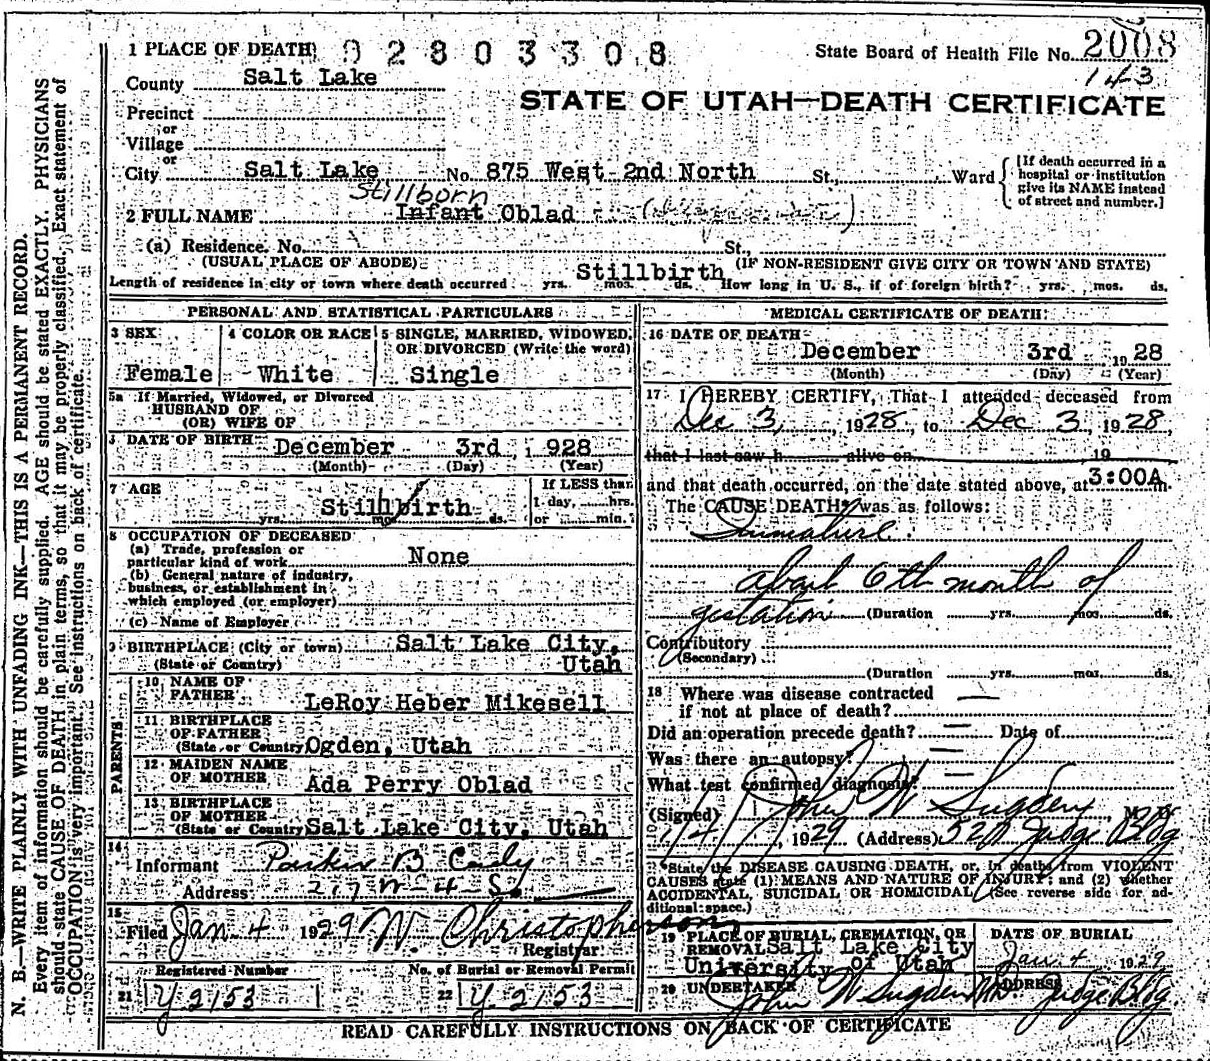 1 PLACE OF DEATH 02803308 State Board of Health File No. 2008
143
County Salt Lake
STATE OF UTAH—DEATH CERTIFICATE
Precinct
or
Village
or
City Salt Lake No. 875 West 2nd North St., Ward
[If death occurred in a hospital or institution give its NAME instead of street and number.]
Stillborn
2 FULL NAME Infant Oblad
(a) Residence. No. St.,
(USUAL PLACE OF ABODE) (IF NON-RESIDENT GIVE CITY OR TOWN AND STATE)
Stillbirth
Length of residence in city or town where death occurred yrs. mos. ds. How long in U. S., if of foreign birth? yrs. mos. ds.
PERSONAL AND STATISTICAL PARTICULARS
3 SEX 4 COLOR OR RACE 5 SINGLE, MARRIED, WIDOWED, OR DIVORCED (Write the word)
Female White Single
5a If Married, Widowed, or Divorced
HUSBAND OF
(OR) WIFE OF
6 DATE OF BIRTH December 3rd, 1928
(Month) (Day) (Year)
7 AGE Stillbirth If LESS than
yrs. mos. ds. 1 day, hrs.
or min.
8 OCCUPATION OF DECEASED
(a) Trade, profession or
particular kind of work None
(b) General nature of industry,
business, or establishment in
which employed (or employer)
(c) Name of Employer
9 BIRTHPLACE (City or town) Salt Lake City,
(State or Country) Utah
PARENTS
10 NAME OF
FATHER LeRoy Heber Mikesell
11 BIRTHPLACE
OF FATHER
(State or Country) Ogden, Utah
12 MAIDEN NAME
OF MOTHER Ada Perry Oblad
13 BIRTHPLACE
OF MOTHER
(State or Country) Salt Lake City, Utah
14
Informant Parkin B Cady
Address 217 W-4-S.
15
Filed Jan. 4 1929 W. Christopherson,
Registrar
Registered Number No. of Burial or Removal Permit
21 Y2153 22 Y-2153
MEDICAL CERTIFICATE OF DEATH
16 DATE OF DEATH
December 3rd 1928
(Month) (Day) (Year)
17 I HEREBY CERTIFY, That I attended deceased from
Dec 3, 1928, to Dec 3, 1928,
that I last saw h alive on 19
and that death occurred, on the date stated above, at 3:00A m.
The CAUSE DEATH* was as follows:
Immature.
about 6th month of
gestation (Duration yrs. mos. ds.
Contributory
(Secondary)
(Duration yrs. mos. ds.
18 Where was disease contracted —
if not at place of death?
Did an operation precede death? — Date of
Was there an autopsy? —
What test confirmed diagnosis? —
(Signed) John W Sugden, M. D.
1/4/, 1929 (Address) 520 Judge Bldg
*State the DISEASE CAUSING DEATH, or, in deaths from VIOLENT
CAUSES state (1) MEANS AND NATURE OF INJURY; and (2) whether
ACCIDENTAL, SUICIDAL OR HOMICIDAL (See reverse side for ad-
ditional space.)
19 PLACE OF BURIAL, CREMATION, OR DATE OF BURIAL
REMOVAL Salt Lake City
University of Utah Jan. 4 1929
20 UNDERTAKER ADDRESS
John W Sugden MD. Judge Bldg
READ CAREFULLY INSTRUCTIONS ON BACK OF CERTIFICATE
N. B.—WRITE PLAINLY WITH UNFADING INK—THIS IS A PERMANENT RECORD.
Every item of information should be carefully supplied. AGE should be stated EXACTLY. PHYSICIANS
should state CAUSE OF DEATH in plain terms, so that it may be properly classified. Exact statement of
OCCUPATION is very important. See instructions on back of certificate.